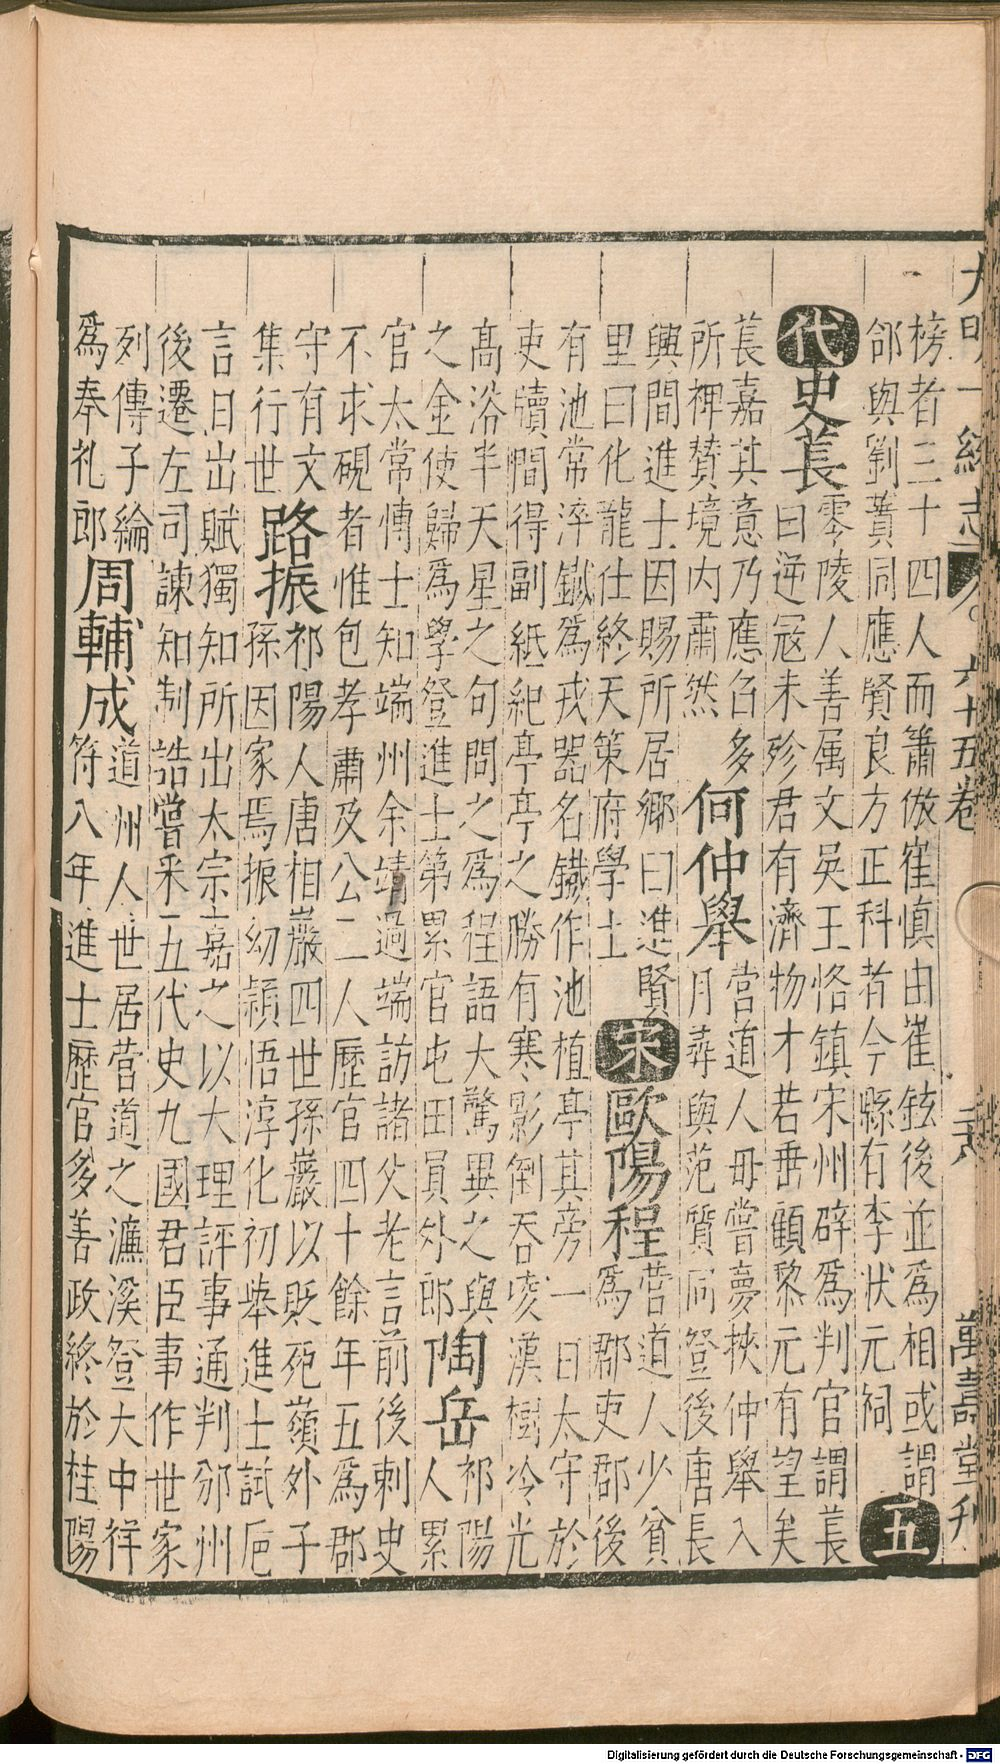 大明一統志 六十五卷 萬壽堂刋
榜者三十四人而簫倣崔慎由崔鉉後並爲相或謂
郃與劉蕡同應賢良方正科者今縣有李狀元祠
五
代史萇
零陵人善属文吳王恪鎮宋州辟爲判官謂萇
曰逆冦未殄君有濟物才若垂顧黎元有望矣
萇嘉其意乃應召多
所裨賛境内肅然
何仲舉
营道人毋嘗夢挾仲舉入
月尋與范質同登後唐長
興間進士因賜所居鄉曰進賢
里曰化龍仕終天策府學士
宋歐陽程
营道人少貧
爲郡吏郡後
有池常淬鐡爲戎器名鐡作池植亭其旁一日太守於
吏牘間得副紙紀亭亭之勝有寒影倒吞凌漢樹冷光
高浴半天星之句問之爲程語大驚異之與
之金使歸爲學登進士第累官屯田員外郎
陶岳
祁陽
人累
官太常愽士知端州余靖過端訪諸父老言前後刺史
不求硯者惟包孝肅及公二人歷官四十餘年五爲郡
守有文
集行世
路振
祁陽人唐相巖四世孫巖以貶死嶺外子
孫因家焉振幼穎悟淳化初舉進士試巵
言日出賦獨知所出太宗嘉之以大理評事通判邠州
後遷左司諫知制誥嘗采五代史九國君臣事作世家
列傳子綸
爲奉礼郎
周輔成
道州人世居营道之濓溪登大中祥
符八年進士歷官多善政終於桂陽
Digitalisierung gefördert durch die Deutsche Forschungsgemeinschaft - DFG